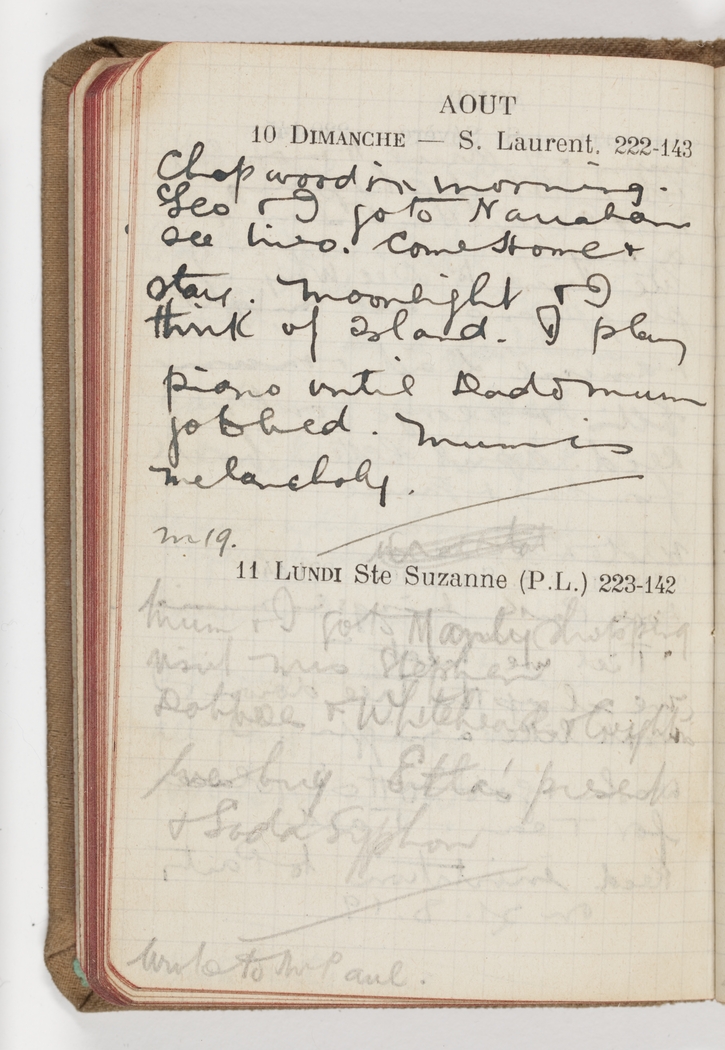 AOUT
10 DIMANCHE — S. Laurent. 222-143
Chop wood in morning.
Leo & I go to Narrabeen
see lives. Come Home &
stay. Moonlight & I
think of Island. I play
piano until Dad & mum
go to bed. Mum is
melancholy.
m 19.
11 LUNDI Ste Suzanne (P.L.) 223-142
Mum & I go to Manly shopping
visit Mrs Stephen
& Whitehead &
buy Etta's present
& Soda Syphon
Write to Mr Paul.